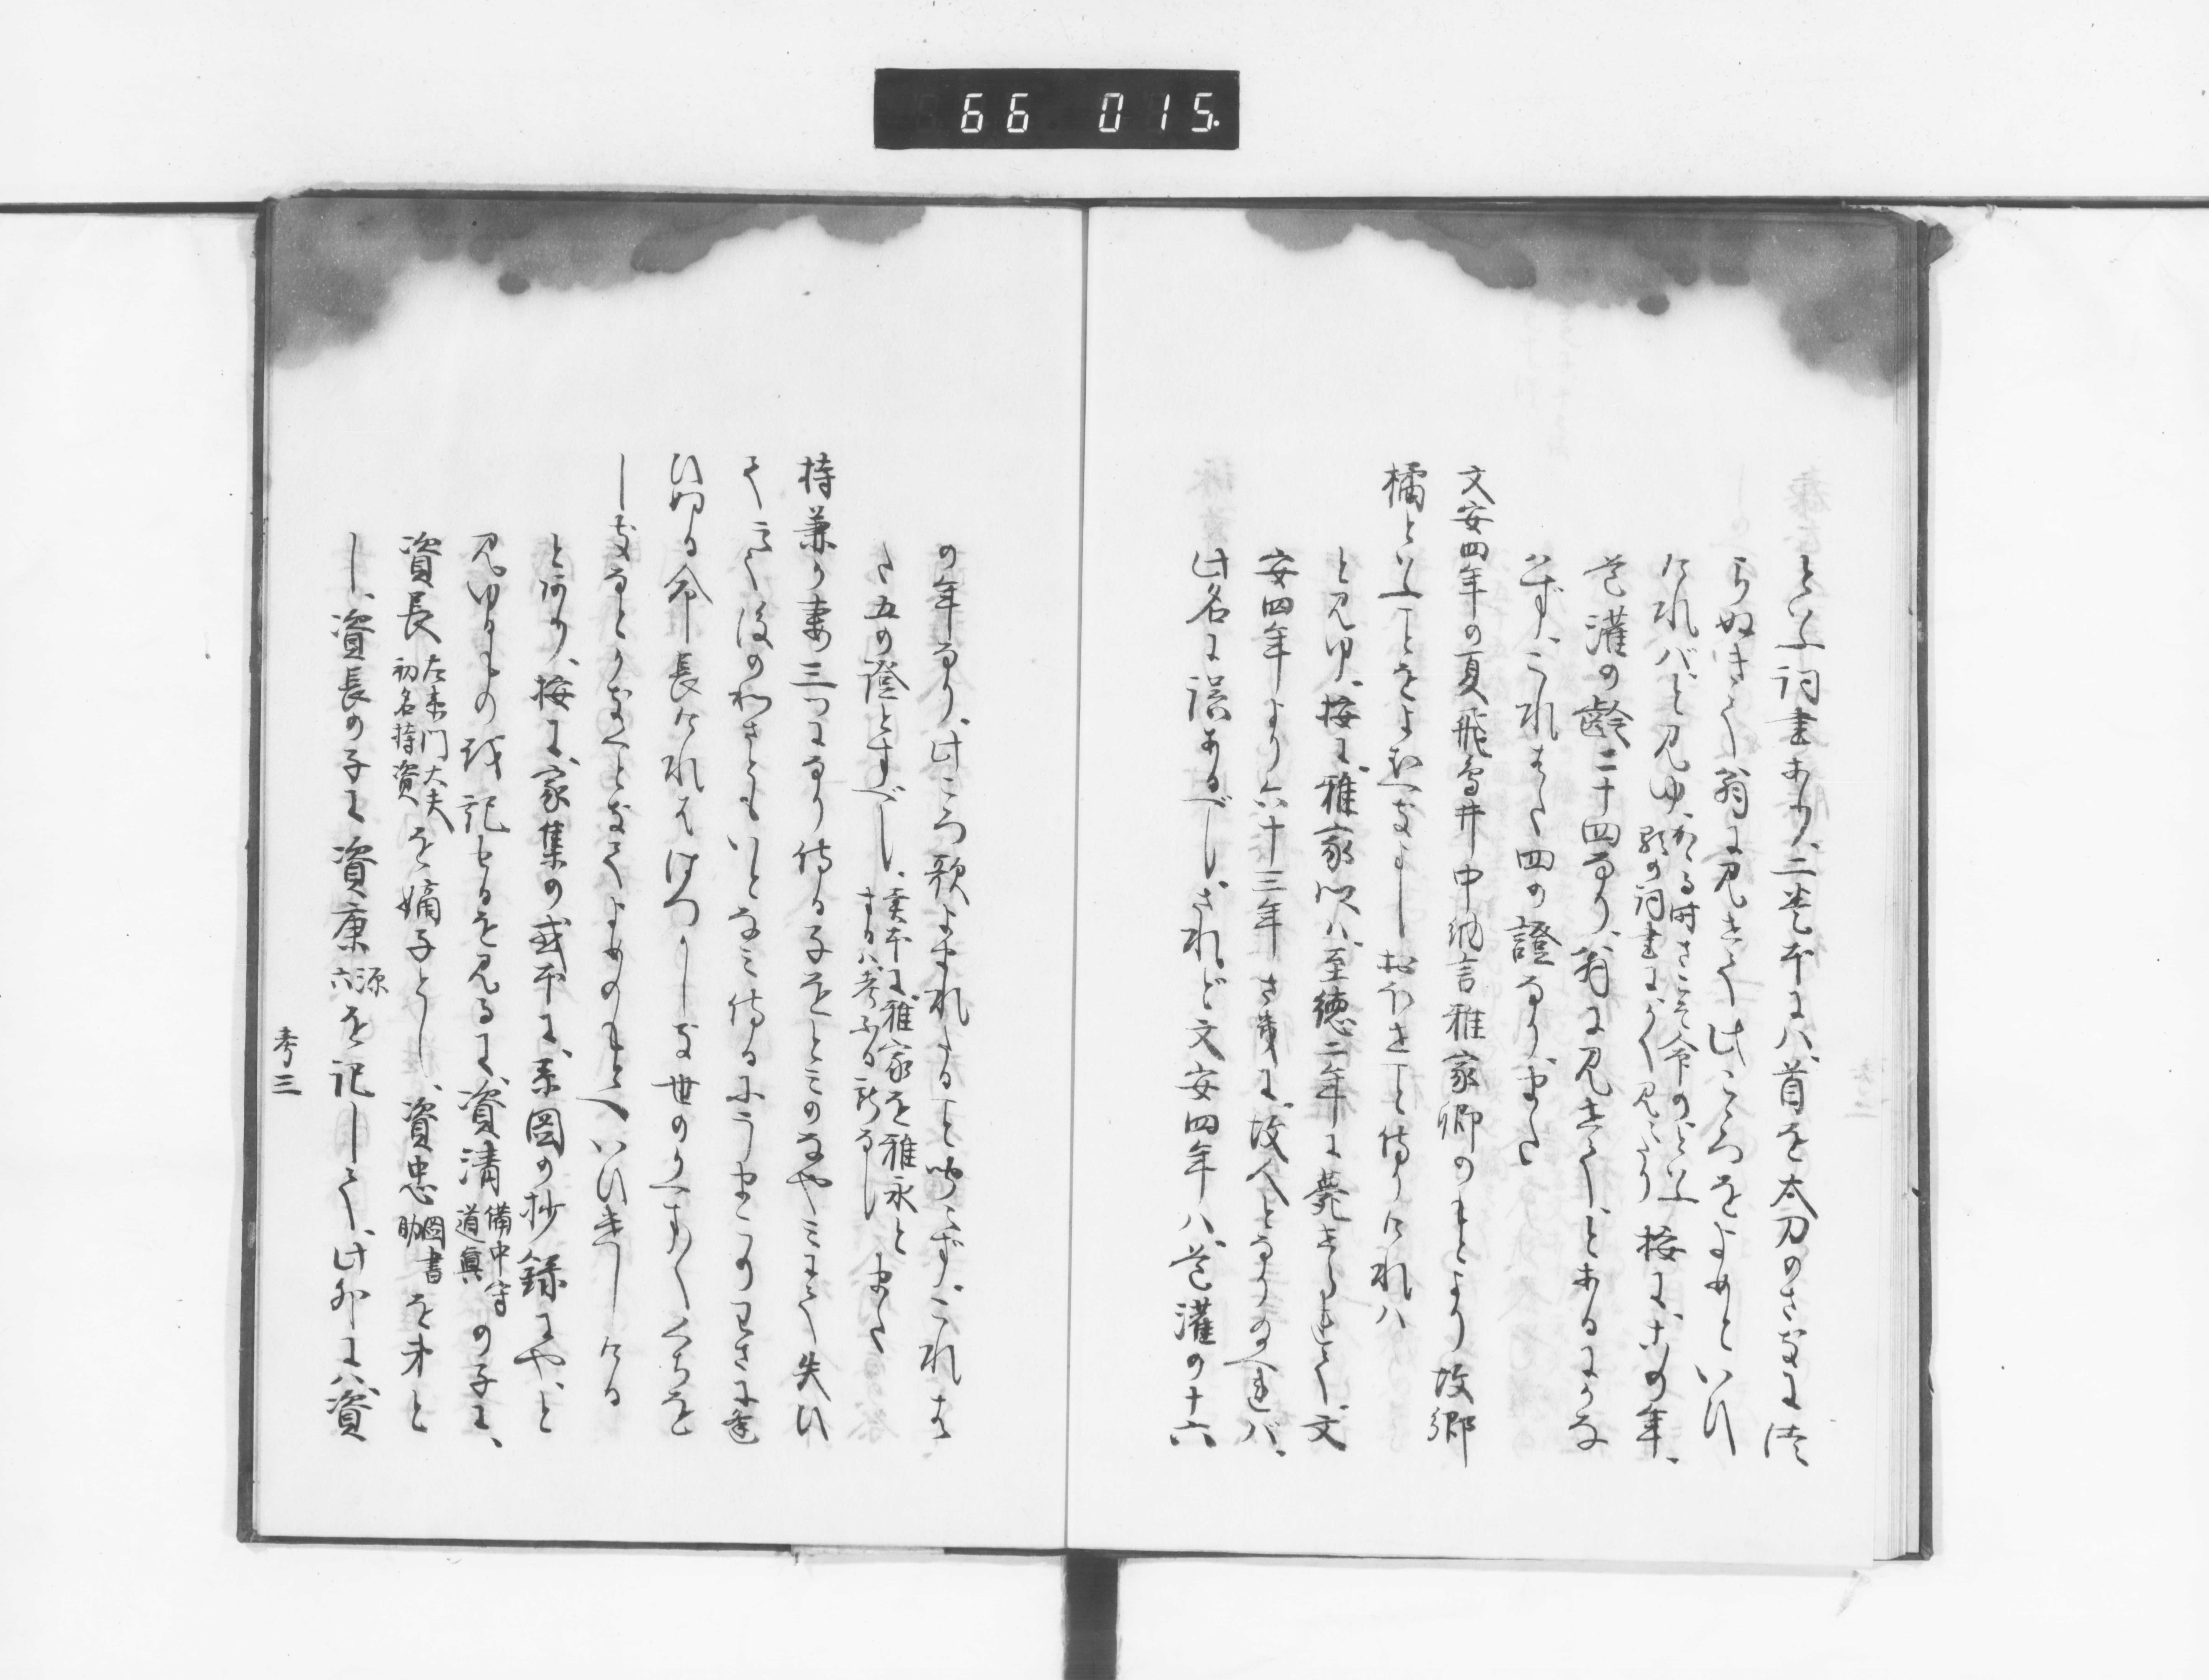 66 015.
といふ詞書あり、二巻本にハ、首を太刀のさきにつ
らぬきて翁に見せて此こゝろをよめといひ
けれバと見ゆ、かゝる時さこそ命のといふ
歌の詞書にかく見えたり 按に、この年、
道灌の齢二十四なり、翁に見せて、とあるにかな
はず、これまた四の證なり、また
文安四年の夏飛鳥井中納言雅家卿のもとより故郷
橘といふことをよみてよしおほせこと侍りけれハ
と見ゆ、按に、雅家卿ハ、至徳二年に薨せられて、文
安四年より六十三年さきに、故人となりたまへれバ、
此名に誤あるべし、されど文安四年ハ、道灌の十六
の年なり、此ころ歌よまれたること聞えず、これま
た五の證とすべし、 異本に雅家を雅永と
するハ考ふる所なし また
持兼か妻三つになり侍る子をとみのなやミにて失ひ
そこて後のわさともいとなミ侍るにうまこのわさに逢
ひぬる命長けれははつかしき世のうへすらくちを
しきなとかきくときてよめのもとへいひ遣しける
とあり、按に、家集の或本に、系図の抄録にや、と
見ゆるもの政記せるを見るに、資清 備中守
道真 の子に、
資長 左衛門大夫
初名持資 を嫡子とし、資忠 図書
助 を弟と
し、資長の子に資康 源
六 を記して、此外にハ、資
考三